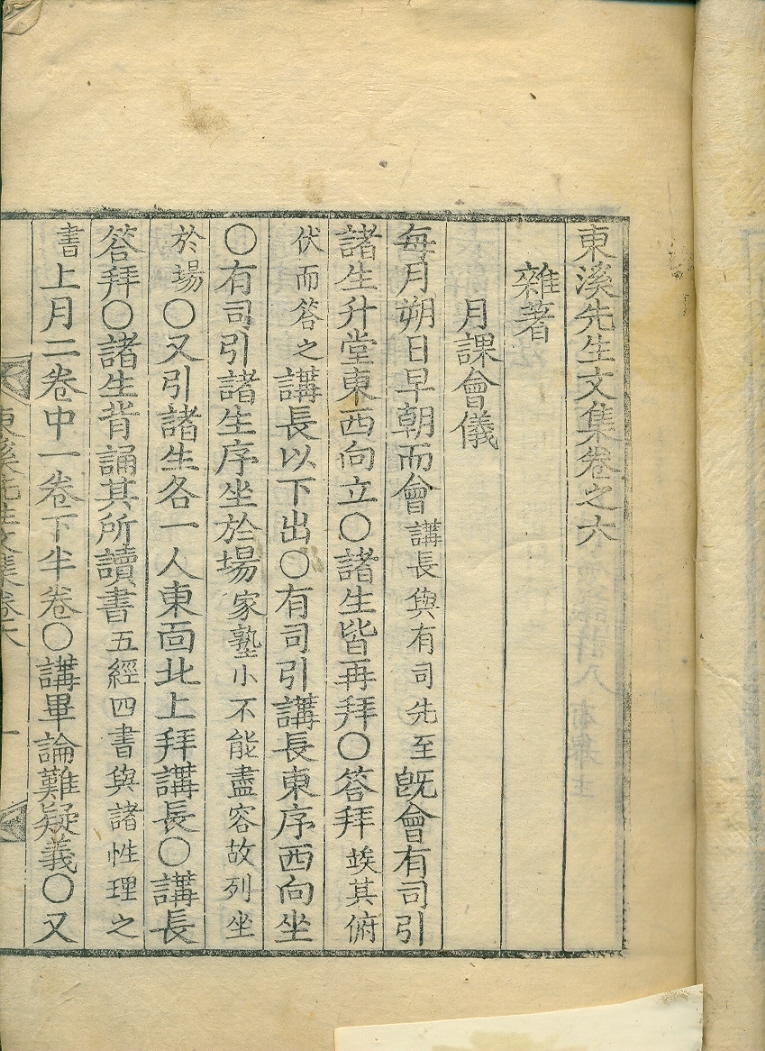 東溪先生文集卷之六
雜著
月課會儀
每月朔日早朝而會講長與有司先至旣會有司引
諸生升堂東西向立○諸生皆再拜○答拜竢其俯
伏而答之講長以下出○有司引講長東序西向坐
○有司引諸生序坐於場家塾小不能盡容故列坐
於場○又引諸生各一人東面北上拜講長○講長
答拜○諸生背誦其所讀書五經四書與諸性理之
書上月二卷中一卷下半卷○講畢論難疑義○又
東溪先生文集卷六 一